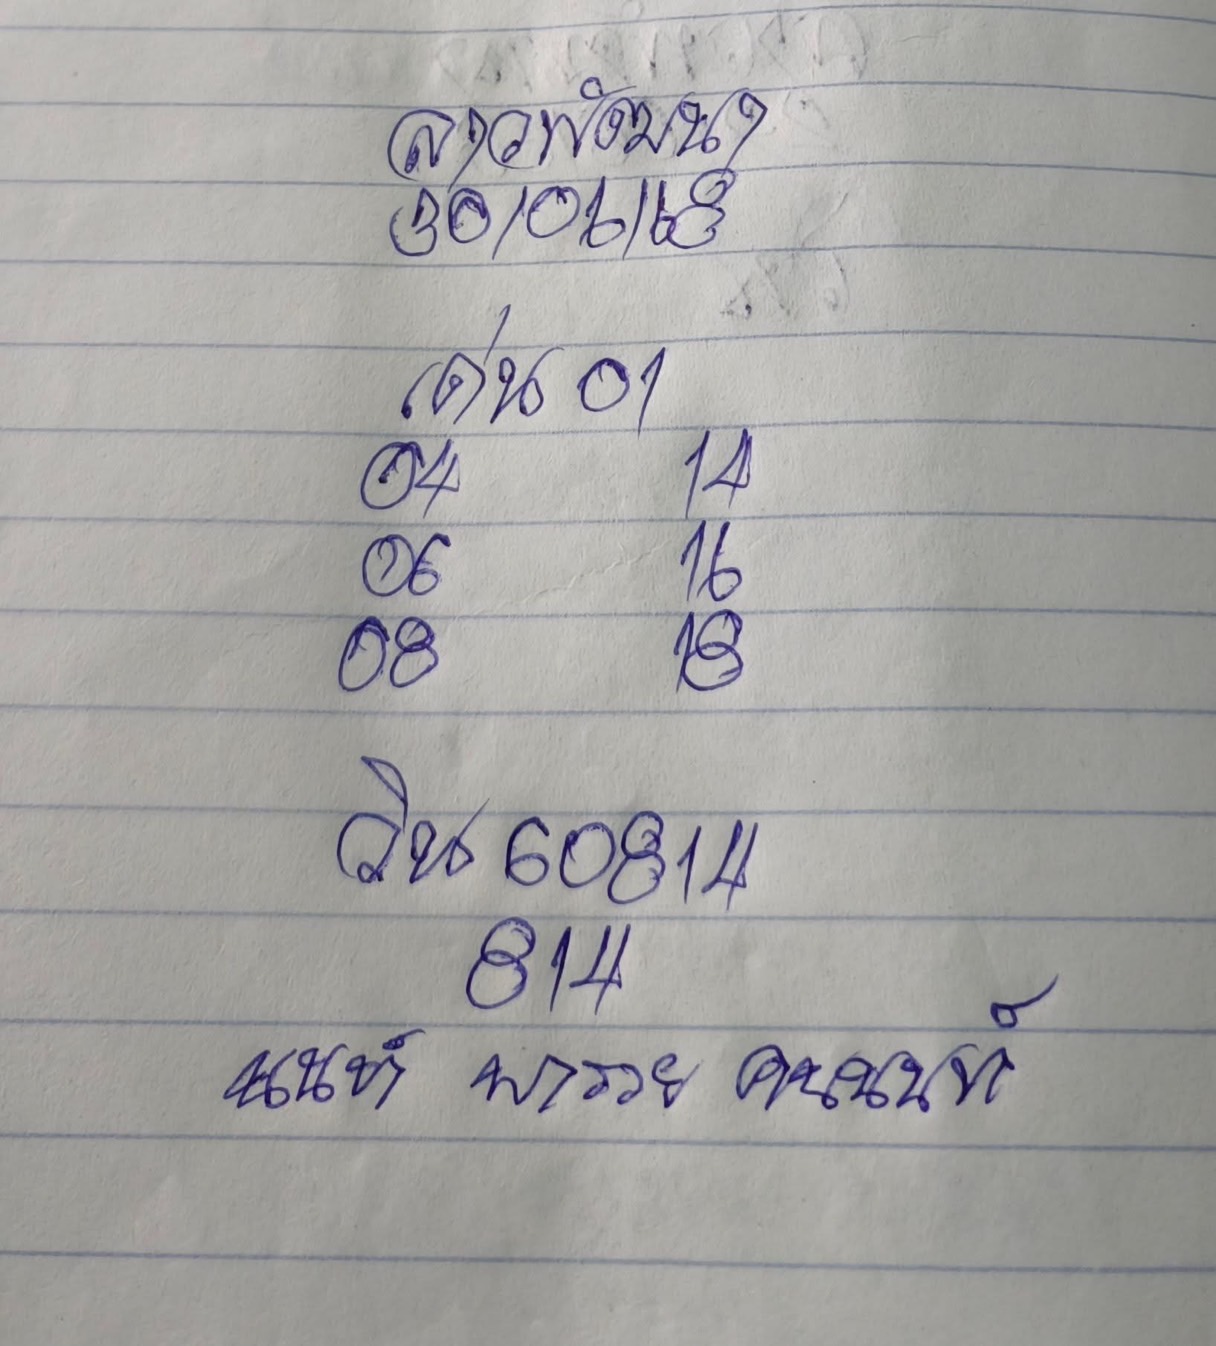 ลาวพัฒนา
30/01/68
เด่น 01
04 14
06 16
08 18
วิน 60814
814
นนท์ พารวย คนนนท์